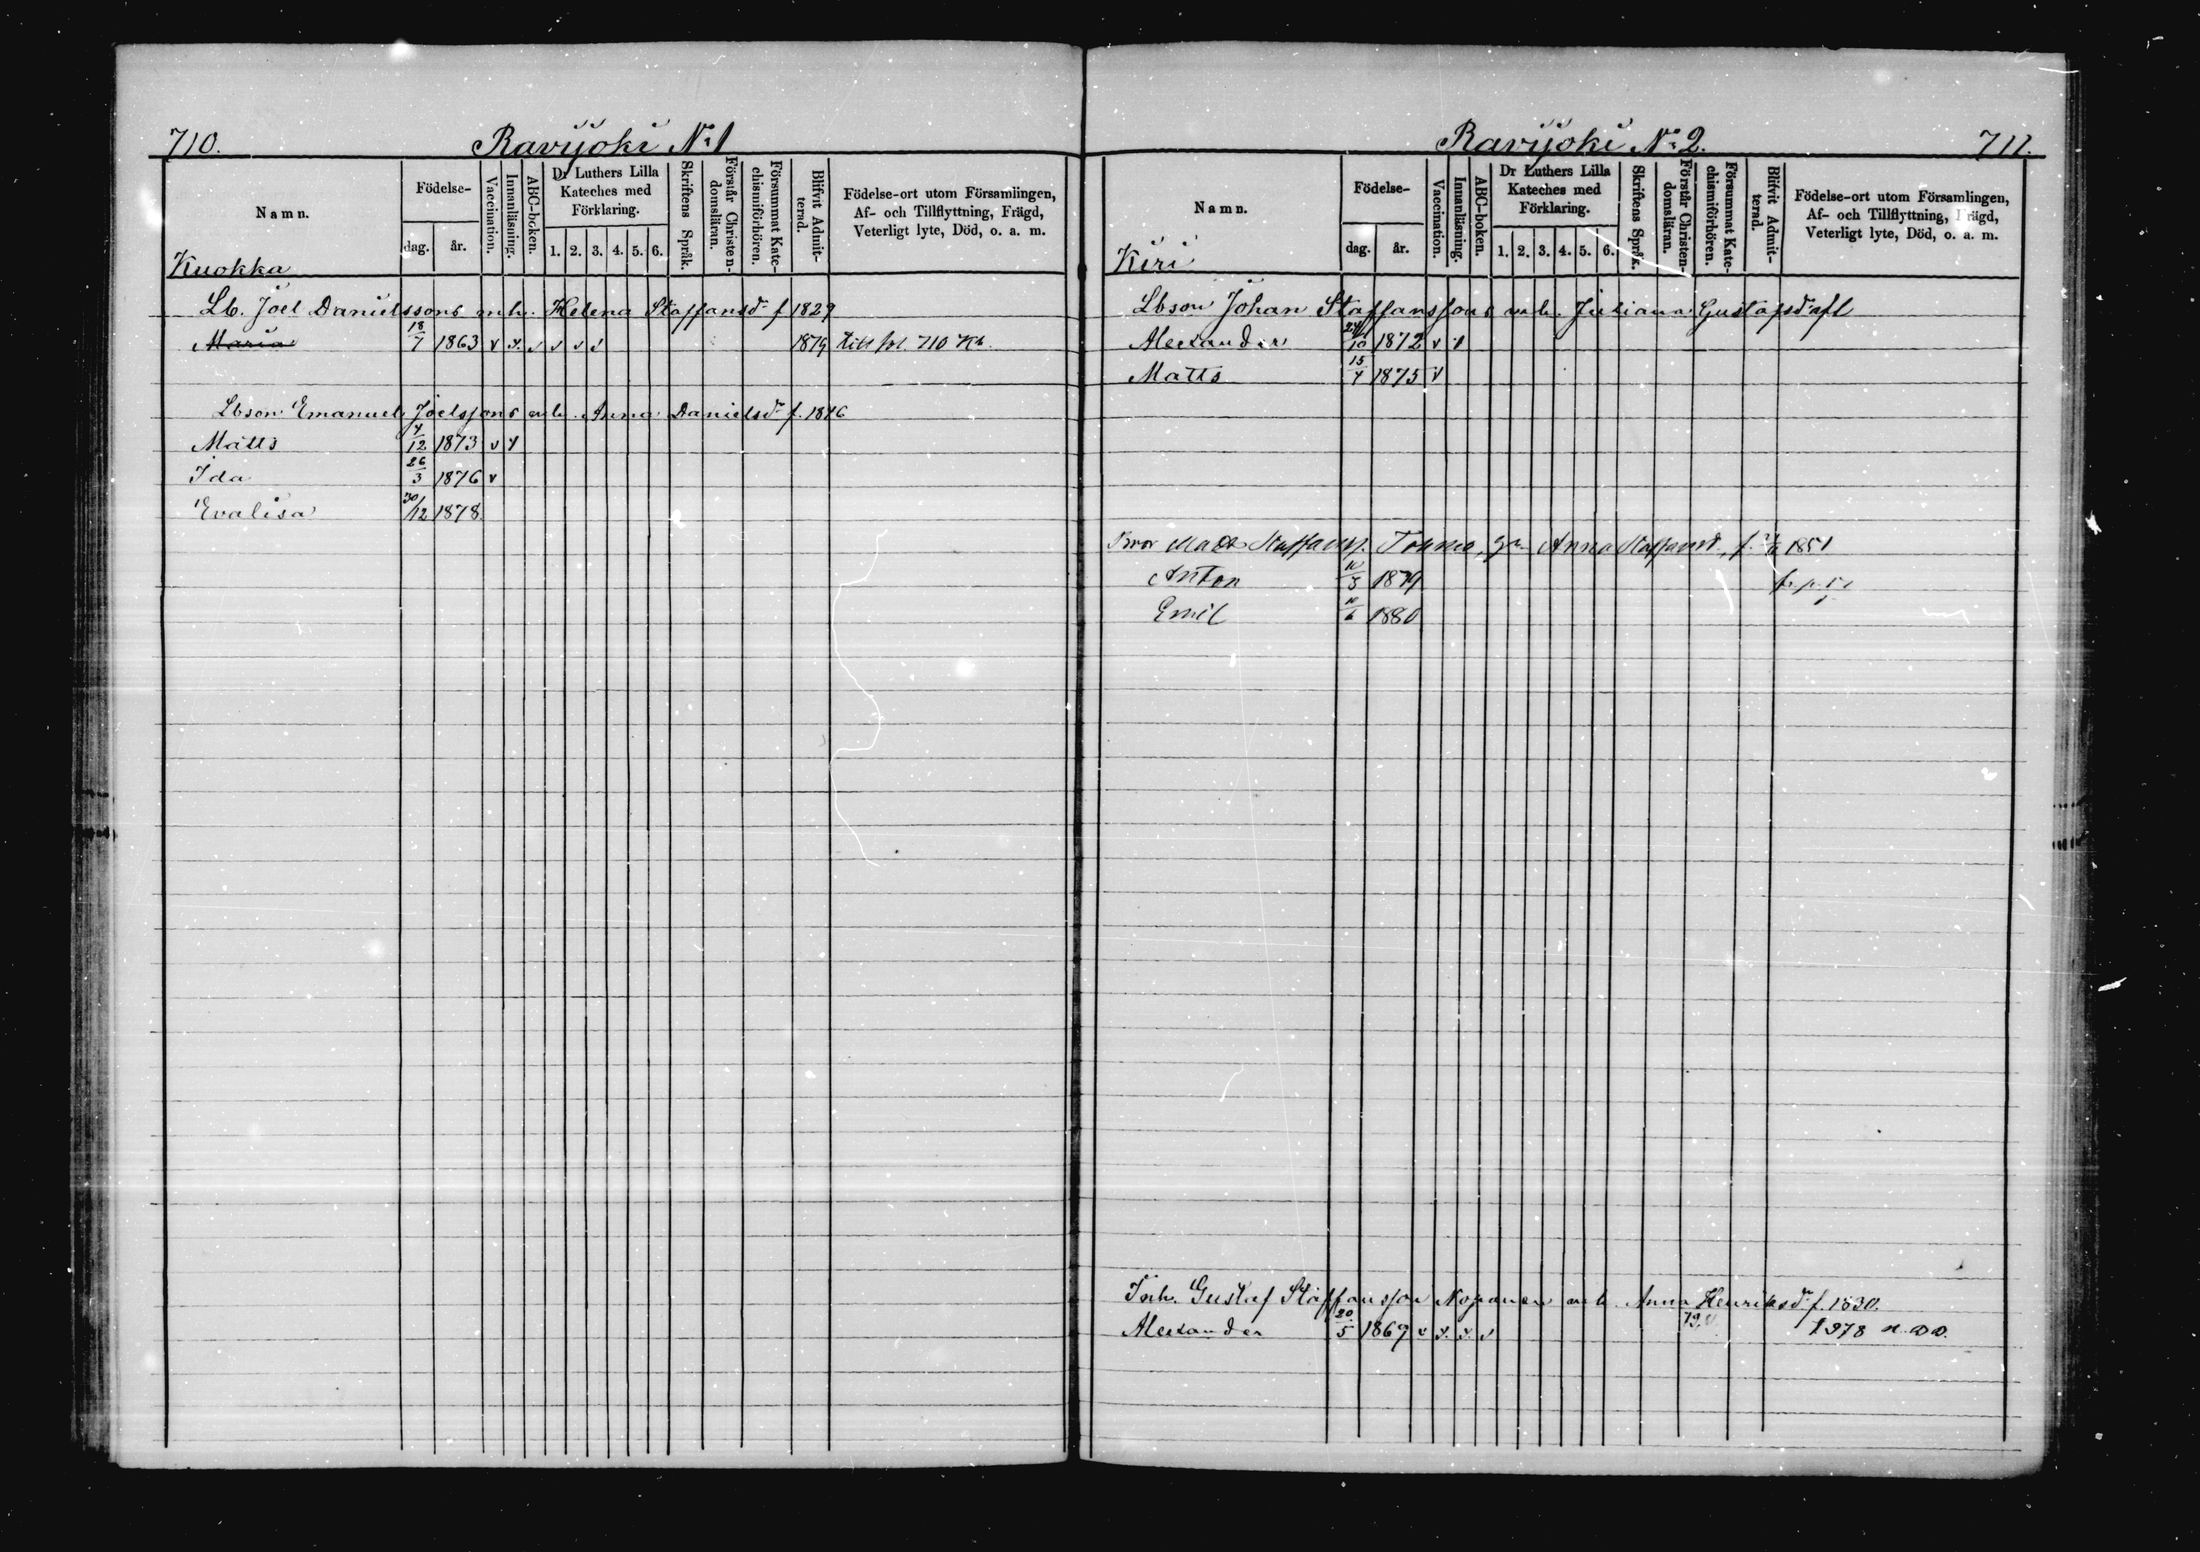 710. Ravijoki No 1
Namn.
Födelse-
dag. år.
Vaccination.
Innanläsning.
ABC-boken.
Dr Luthers Lilla
Kateches med
Förklaring.
1. 2. 3. 4. 5. 6.
Skriftens Språk.
Förstår Christen-
domsläran.
Försummat Kate-
chismiförhören.
Blifvit Admit-
terad.
Födelse-ort utom Församlingen,
Af- och Tillflyttning, Frägd,
Veterligt lyte, Död, o. a. m.
Kuokka
Lb. Joel Danielssons m.h. Helena Staffansdr f 1829
Maria 18/7 1863 v v. v v v v 1879 till fol 710 Kb.
Lbson Emanuel Joelssons m.h. Anna Danielsdr f. 1846
Matts 4/12 1873 v v
Ida 26/3 1876 v
Evalisa 30/12 1878.
Ravijoki No 2. 711.
Namn.
Födelse-
dag. år.
Vaccination.
Innanläsning.
ABC-boken.
Dr Luthers Lilla
Kateches med
Förklaring.
1. 2. 3. 4. 5. 6.
Skriftens Språk.
Förstår Christen-
domsläran.
Försummat Kate-
chismiförhören.
Blifvit Admit-
terad.
Födelse-ort utom Församlingen,
Af- och Tillflyttning, Frägd,
Veterligt lyte, Död, o. a. m.
Kiri
Lbson Johan Staffanssons m.h. Juliana Gustafsdr
Alexander 24/10 1872 v v
Matts 15/4 1875 v
Matts Staffanss. Anna Staffansd. f. 1851
Anton 10/3 1879
Emil 1880
Inh. Gustaf Staffansson Nopanen m.h. Anna Henriksdr f. 1830.
Alexander 20/5 1869 v v. v. v 79. 1878 n.